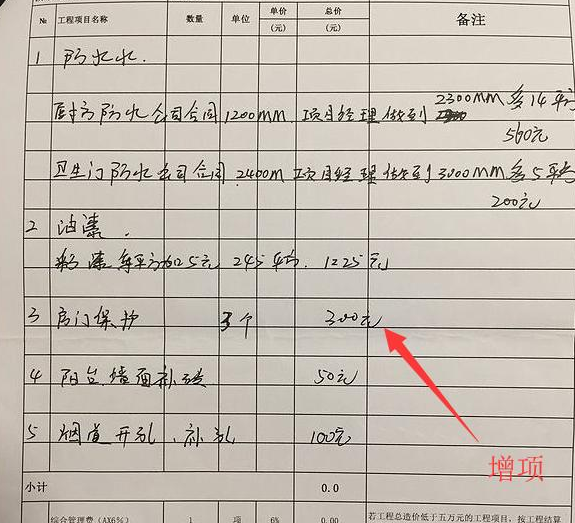 № 工程项目名称 数量 单位 单价(元) 总价(元) 备注
1 防水水.
厨房防水公司合同1200mm 项目经理做到2300mm多14平方
560元
卫生门防水公司合同2400m 项目经理做到3000mm多5平方
200元
2 油漆.
漆每平方加5元 245平方. 1225元
3 房门保护 3个 300元
4 阳台墙面补 50元
5 烟道开孔、补孔 100元
增项
小计 0.0
综合管理费(AX6%) 1 项 6% 0.00 若工程总造价低于五万元的工程项目,按工程结算